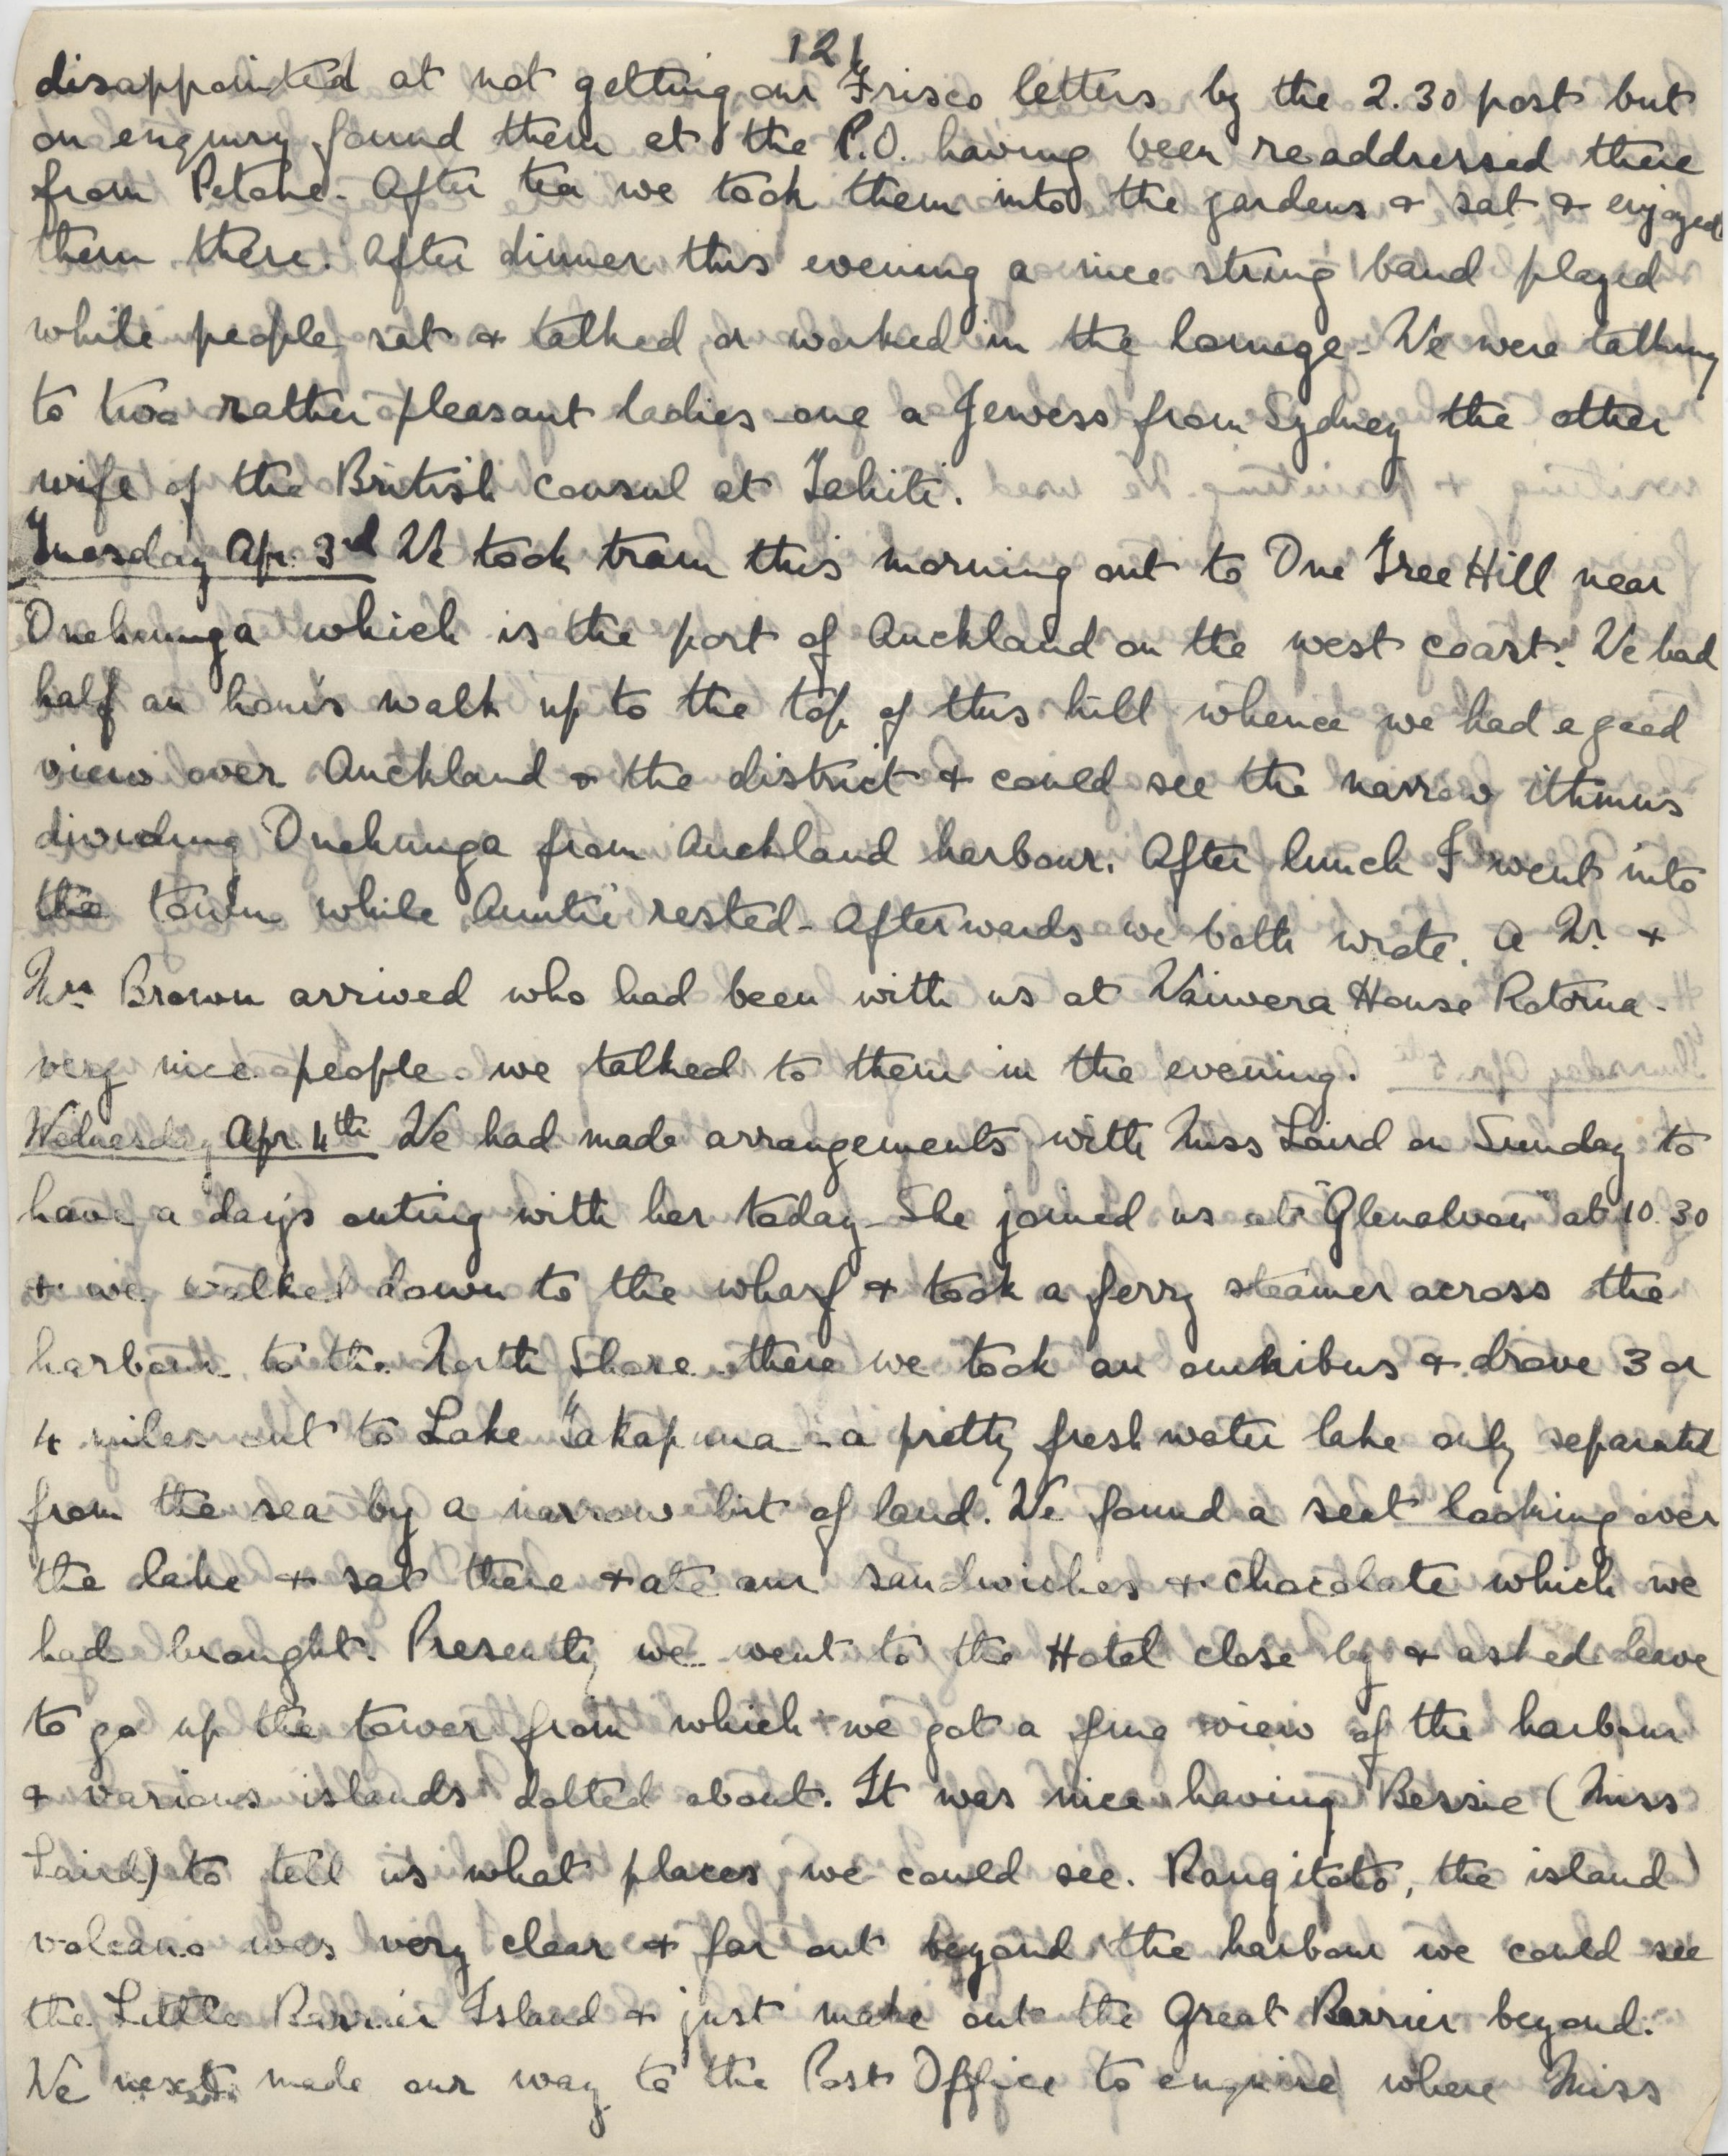 121
disappointed at not getting our Frisco letters by the 2.30 post but
on enquiry found them at the P.O. having been readdressed there
from Petone. After tea we took them into the gardens & sat & enjoyed
them there. After dinner this evening a nice string band played
while people sat & talked or worked in the lounge - We were talking
to two rather pleasant ladies one a Jewess from Sydney the other
wife of the British consul at Tahiti.
Tuesday Apr. 3rd We took tram this morning out to One Tree Hill near
Onehunga which is the port of Auckland on the west coast. We had
half an hour's walk up to the top of this hill whence we had a good
view over Auckland & the district & could see the narrow ithmus
dividing Onehunga from Auckland harbour. After lunch I went into
the town while Auntie rested - Afterwards we both wrote. A Mr. &
Mrs Brown arrived who had been with us at Waiwera House Rotorua -
very nice people. we talked to them in the evening.
Wednesday Apr. 4th We had made arrangements with Miss Laird on Sunday to
have a day's outing with her today - She joined us at "Glenalvon" at 10.30
& we walked down to the wharf & took a ferry steamer across the
harbour to the North Shore there we took an omnibus & drove 3 or
4 miles out to Lake Takapuna - a pretty fresh water lake only separated
from the sea by a narrow bit of land. We found a seat looking over
the lake & sat there & ate our sandwiches & chocolate which we
had brought. Presently we went to the Hotel close by & asked leave
to go up the tower from which we got a fine view of the harbour
& various islands dotted about. It was nice having Bessie (Miss
Laird) to tell us what places we could see. Rangitoto, the island
volcano was very clear & far out beyond the harbour we could see
the Little Barrier Island & just make out the Great Barrier beyond.
We next made our way to the Post Office to enquire where Miss